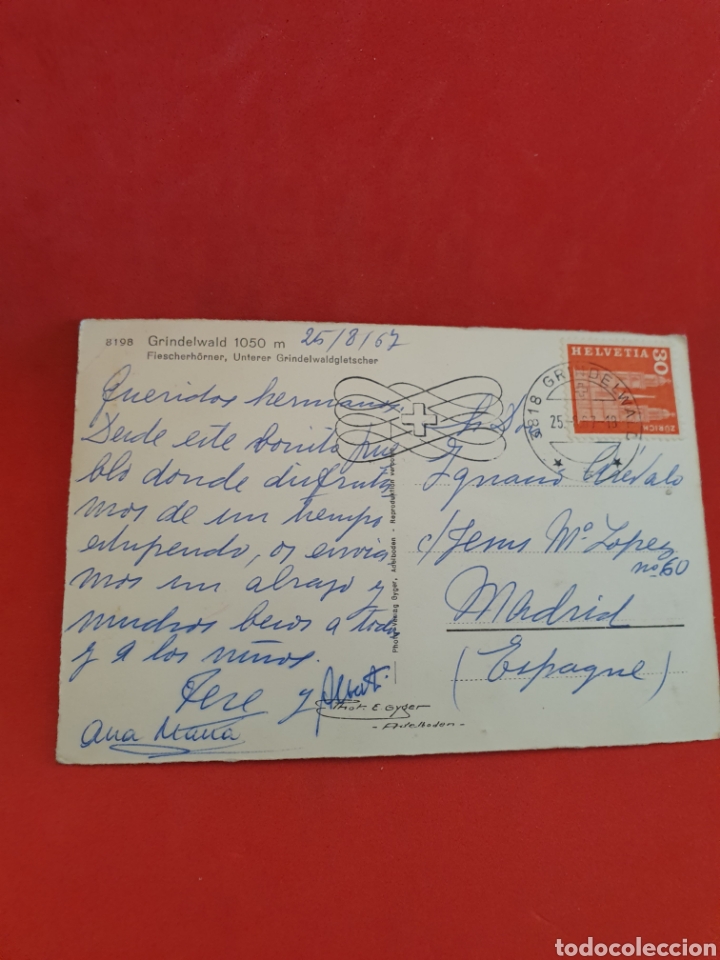 8198 Grindelwald 1050 m 25/8/67
Fiescherhörner, Unterer Grindelwaldgletscher
Queridos hermanos,
Desde este bonito pue
blo donde disfruta
mos de un tiempo
estupendo, os envia
mos un abrazo y
muchos besos a todos
y a los niños.
Tere y Albert.
Ana Maria
Phot. E Gyger
- Adelboden -
Photoverlag Gyger, Adelboden - Reproduktion
HELVETIA
30
ZÜRICH
3818 GRINDELWALD
25.
Sr. D.
Ignacio Arévalo
c/ Jesus Mª Lopez
nº 60
Madrid
(Espagne)
todocoleccion